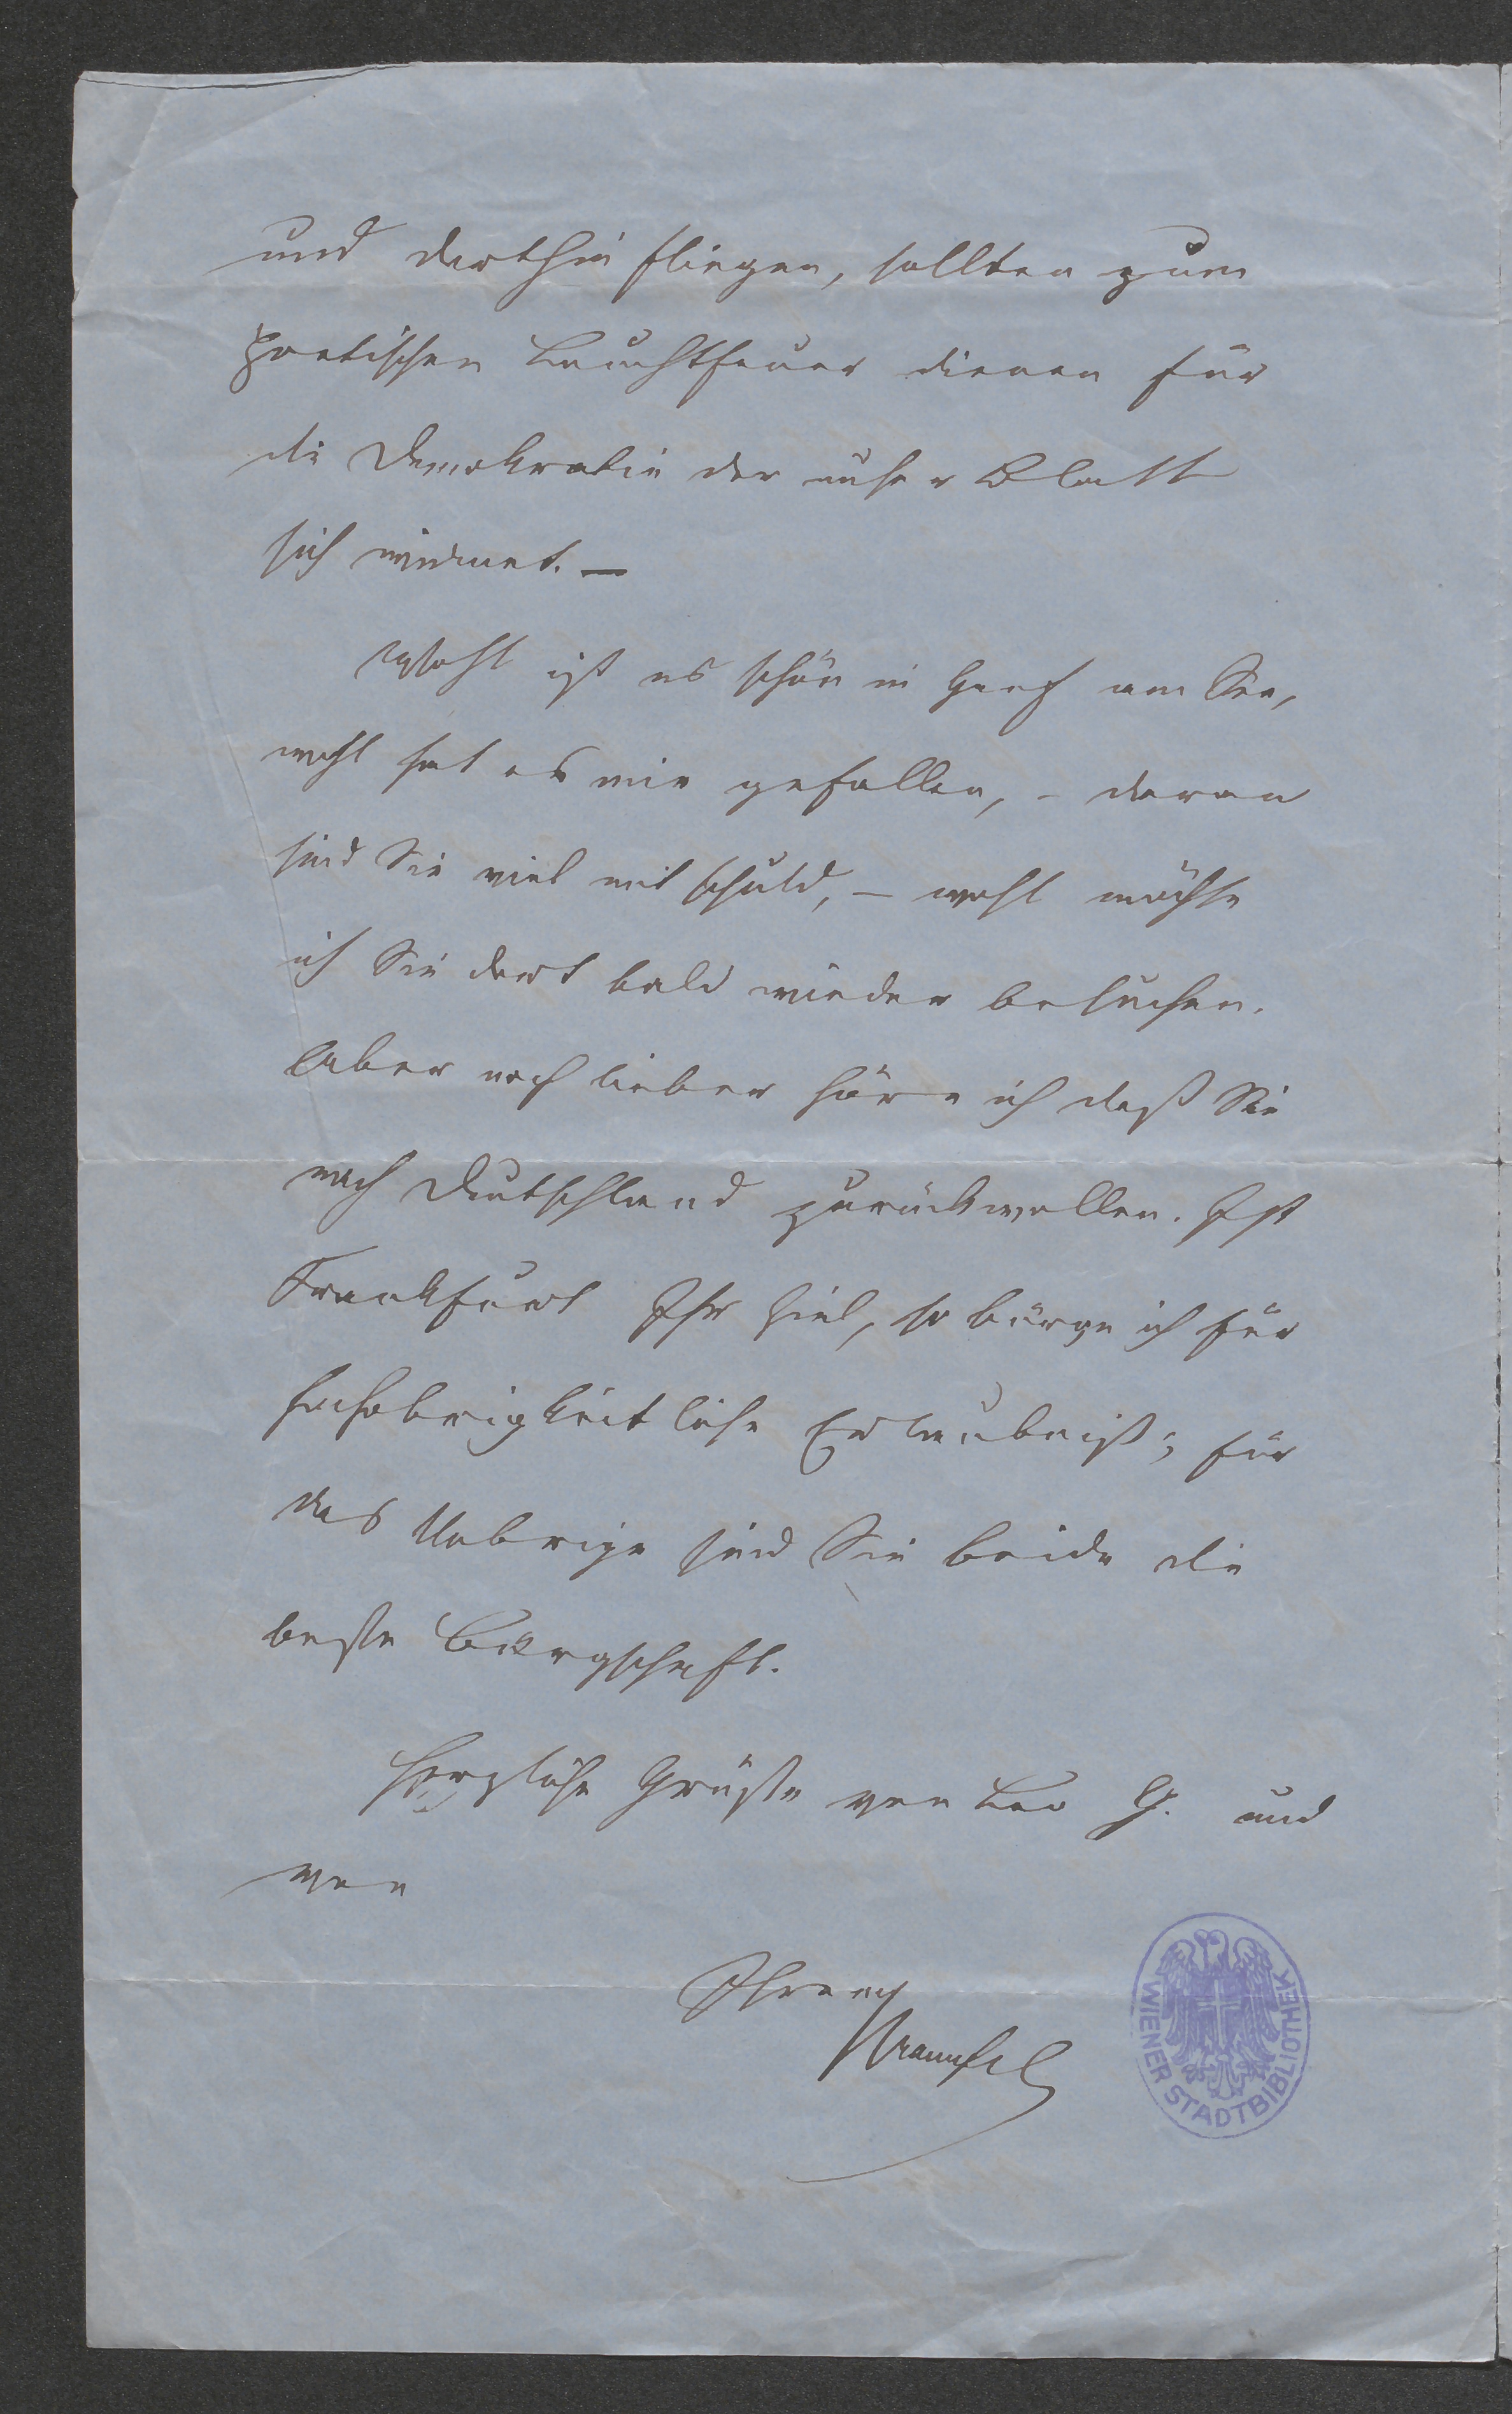 und dorthin fliegen, sollten zum
poetischen Leuchtfeuer dienen für
die Demokratie der unser Blatt
sich widmet. —
Wohl ist es schön in Genf am See,
wohl hat es mir gefallen, – daran
sind Sie viel mit schuld, – wohl möchte
ich Sie dort bald wieder besuchen.
Aber noch lieber höre ich daß Sie
nach Deutschland zurückwollen. Ist
Frankfurt Ihr Ziel, so bürge ich für
hochobrigkeitliche Erlaubniß; für
das Uebrige sind Sie beide die
beste Bürgschaft.
Herzliche Grüße von Leo G. und
von
Ihrem
Braunfels
WIENER STADTBIBLIOTHEK